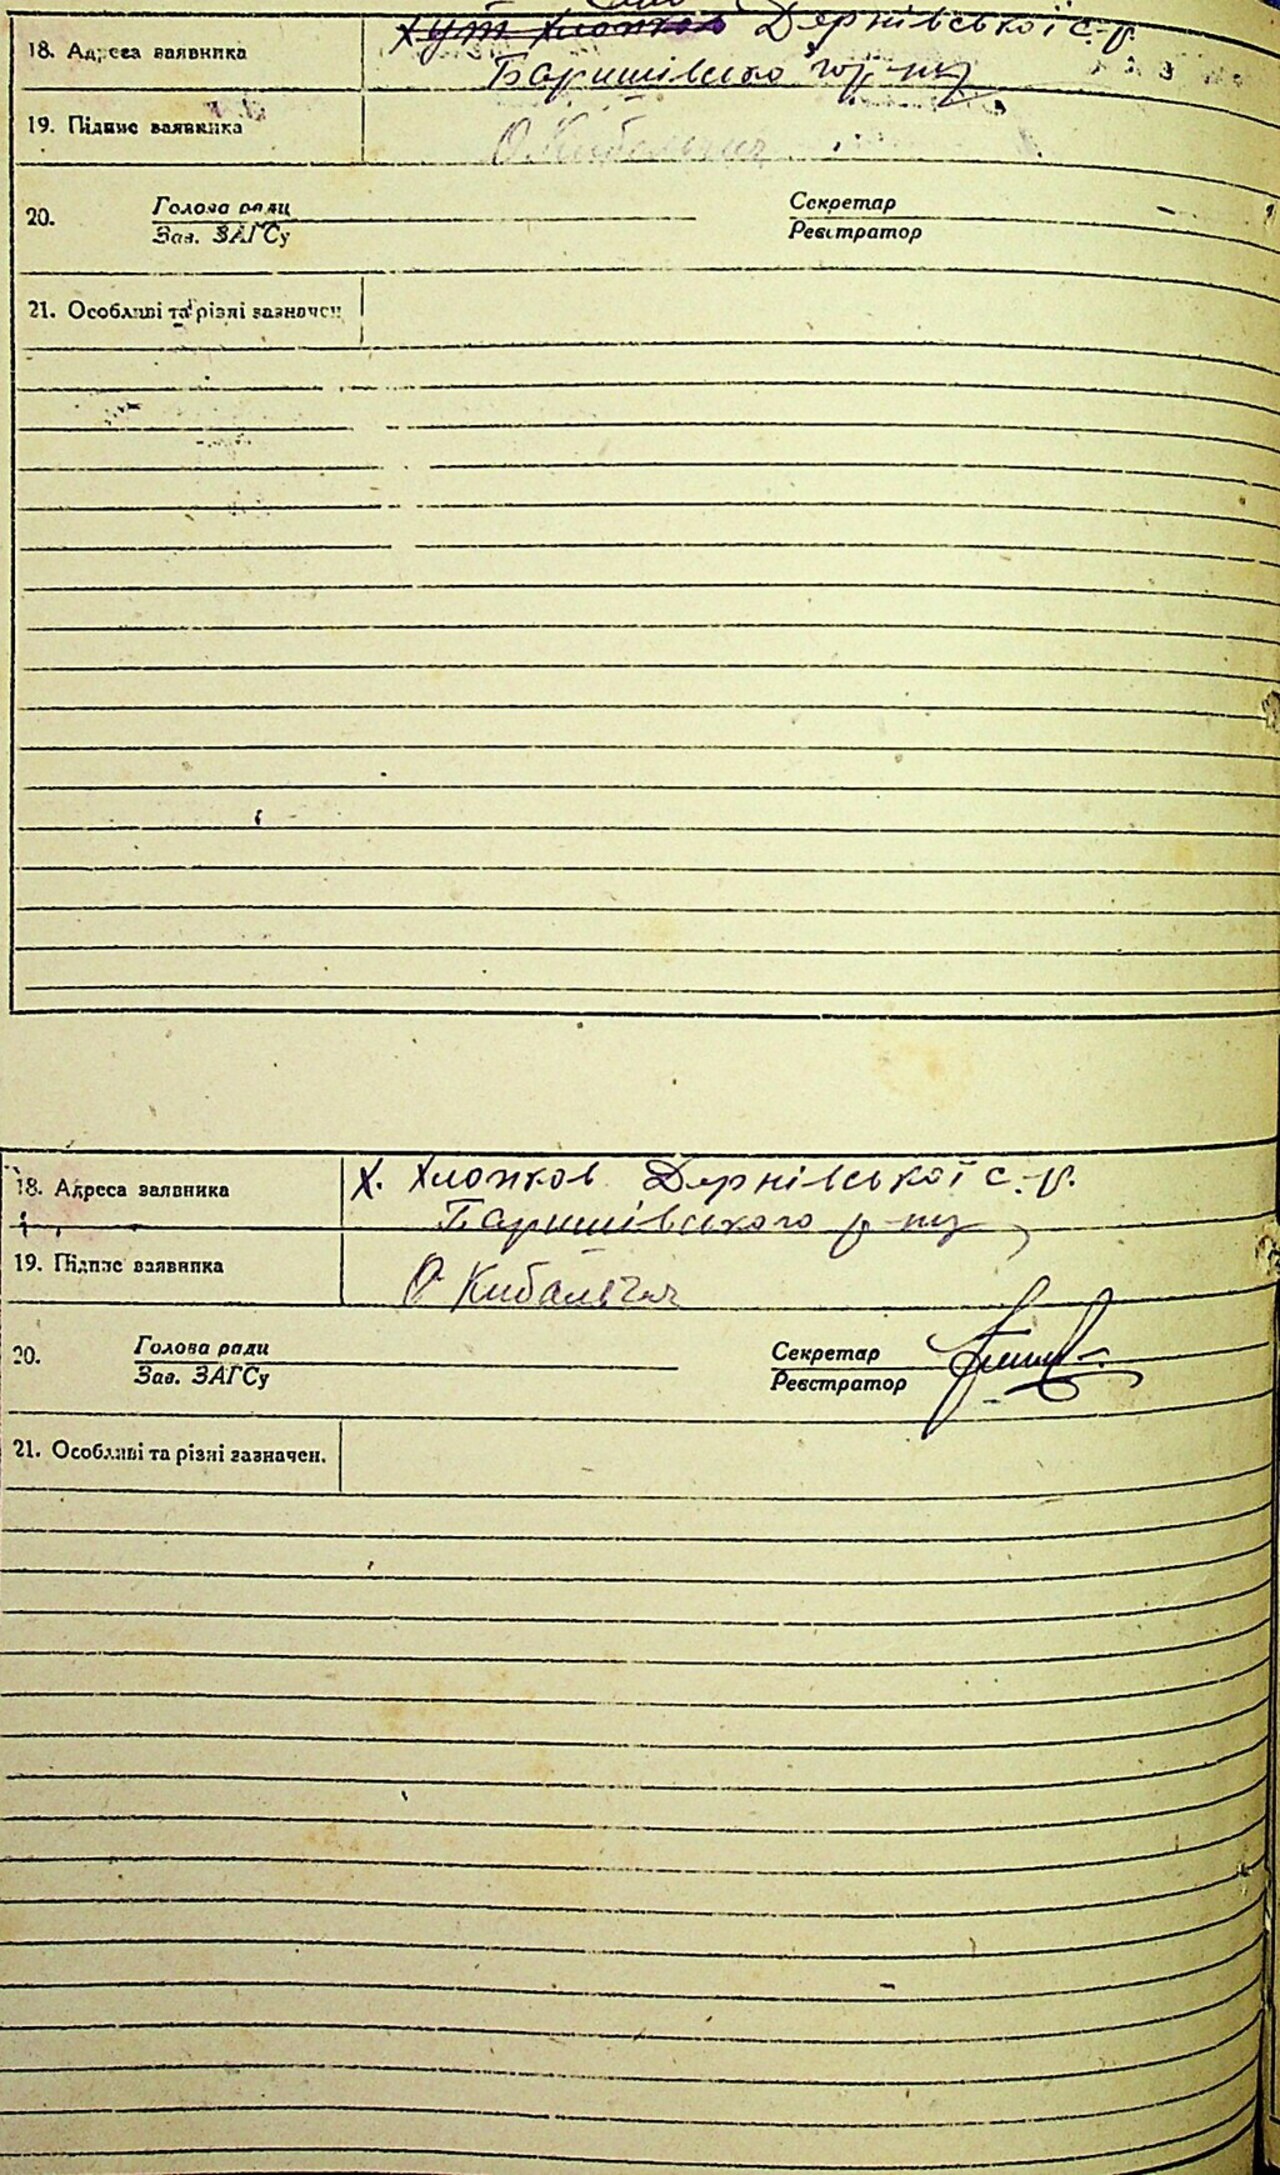 18. Адреса заявника
Хут Хлопков Дернівської с.-р.
Баришівського р-ну
19. Підпис заявника
О. Кибальчич
20. Голова ради
Зав. ЗАГСу
Секретар
Реєстратор
21. Особливі та різні зазначен.
18. Адреса заявника
Х. Хлопков Дернівської с.-р.
Баришівського р-ну
19. Підпис заявника
О Кибальчич
20. Голова ради
Зав. ЗАГСу
Секретар
Реєстратор
21. Особливі та різні зазначен.